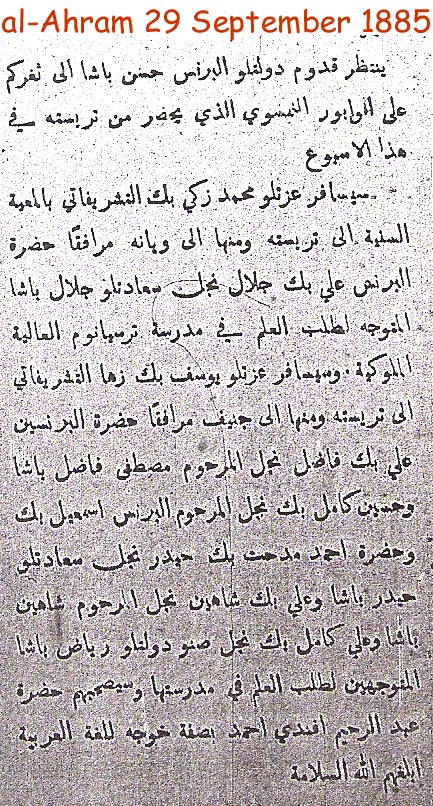 al-Ahram 29 September 1885
ينتظر قدوم دولتلو البرنس حسن باشا الى ثغركم
على الوابور النمسوي الذي يحضر من تريسته في
هذا الاسبوع
سيسافر عزتلو محمد زكي بك التشريفاتي بالمعية
السنية الى تريسته ومنها الى ويانه مرافقًا حضرة
البرنس علي بك جلال نجل سعادتلو جلال باشا
المتوجه لطلب العلم في مدرسة ترسيانوم العالية
الملوكية. وسيسافر عزتلو يوسف بك زها التشريفاتي
الى تريسته ومنها الى جنيف مرافقًا حضرة البرنسين
علي بك فاضل نجل المرحوم مصطفى فاضل باشا
وحسين كامل بك نجل المرحوم البرنس اسمعيل بك
وحضرة احمد مدحت بك حيدر نجل سعادتلو
حيدر باشا وعلي بك شاهين نجل المرحوم شاهين
باشا وعلي كامل بك نجل صنو دولتلو رياض باشا
المتوجهين لطلب العلم في مدرستها وسيصحبهم حضرة
عبد الرحيم افندي احمد بصفة خوجه للغة العربية
ابلغهم الله السلامة